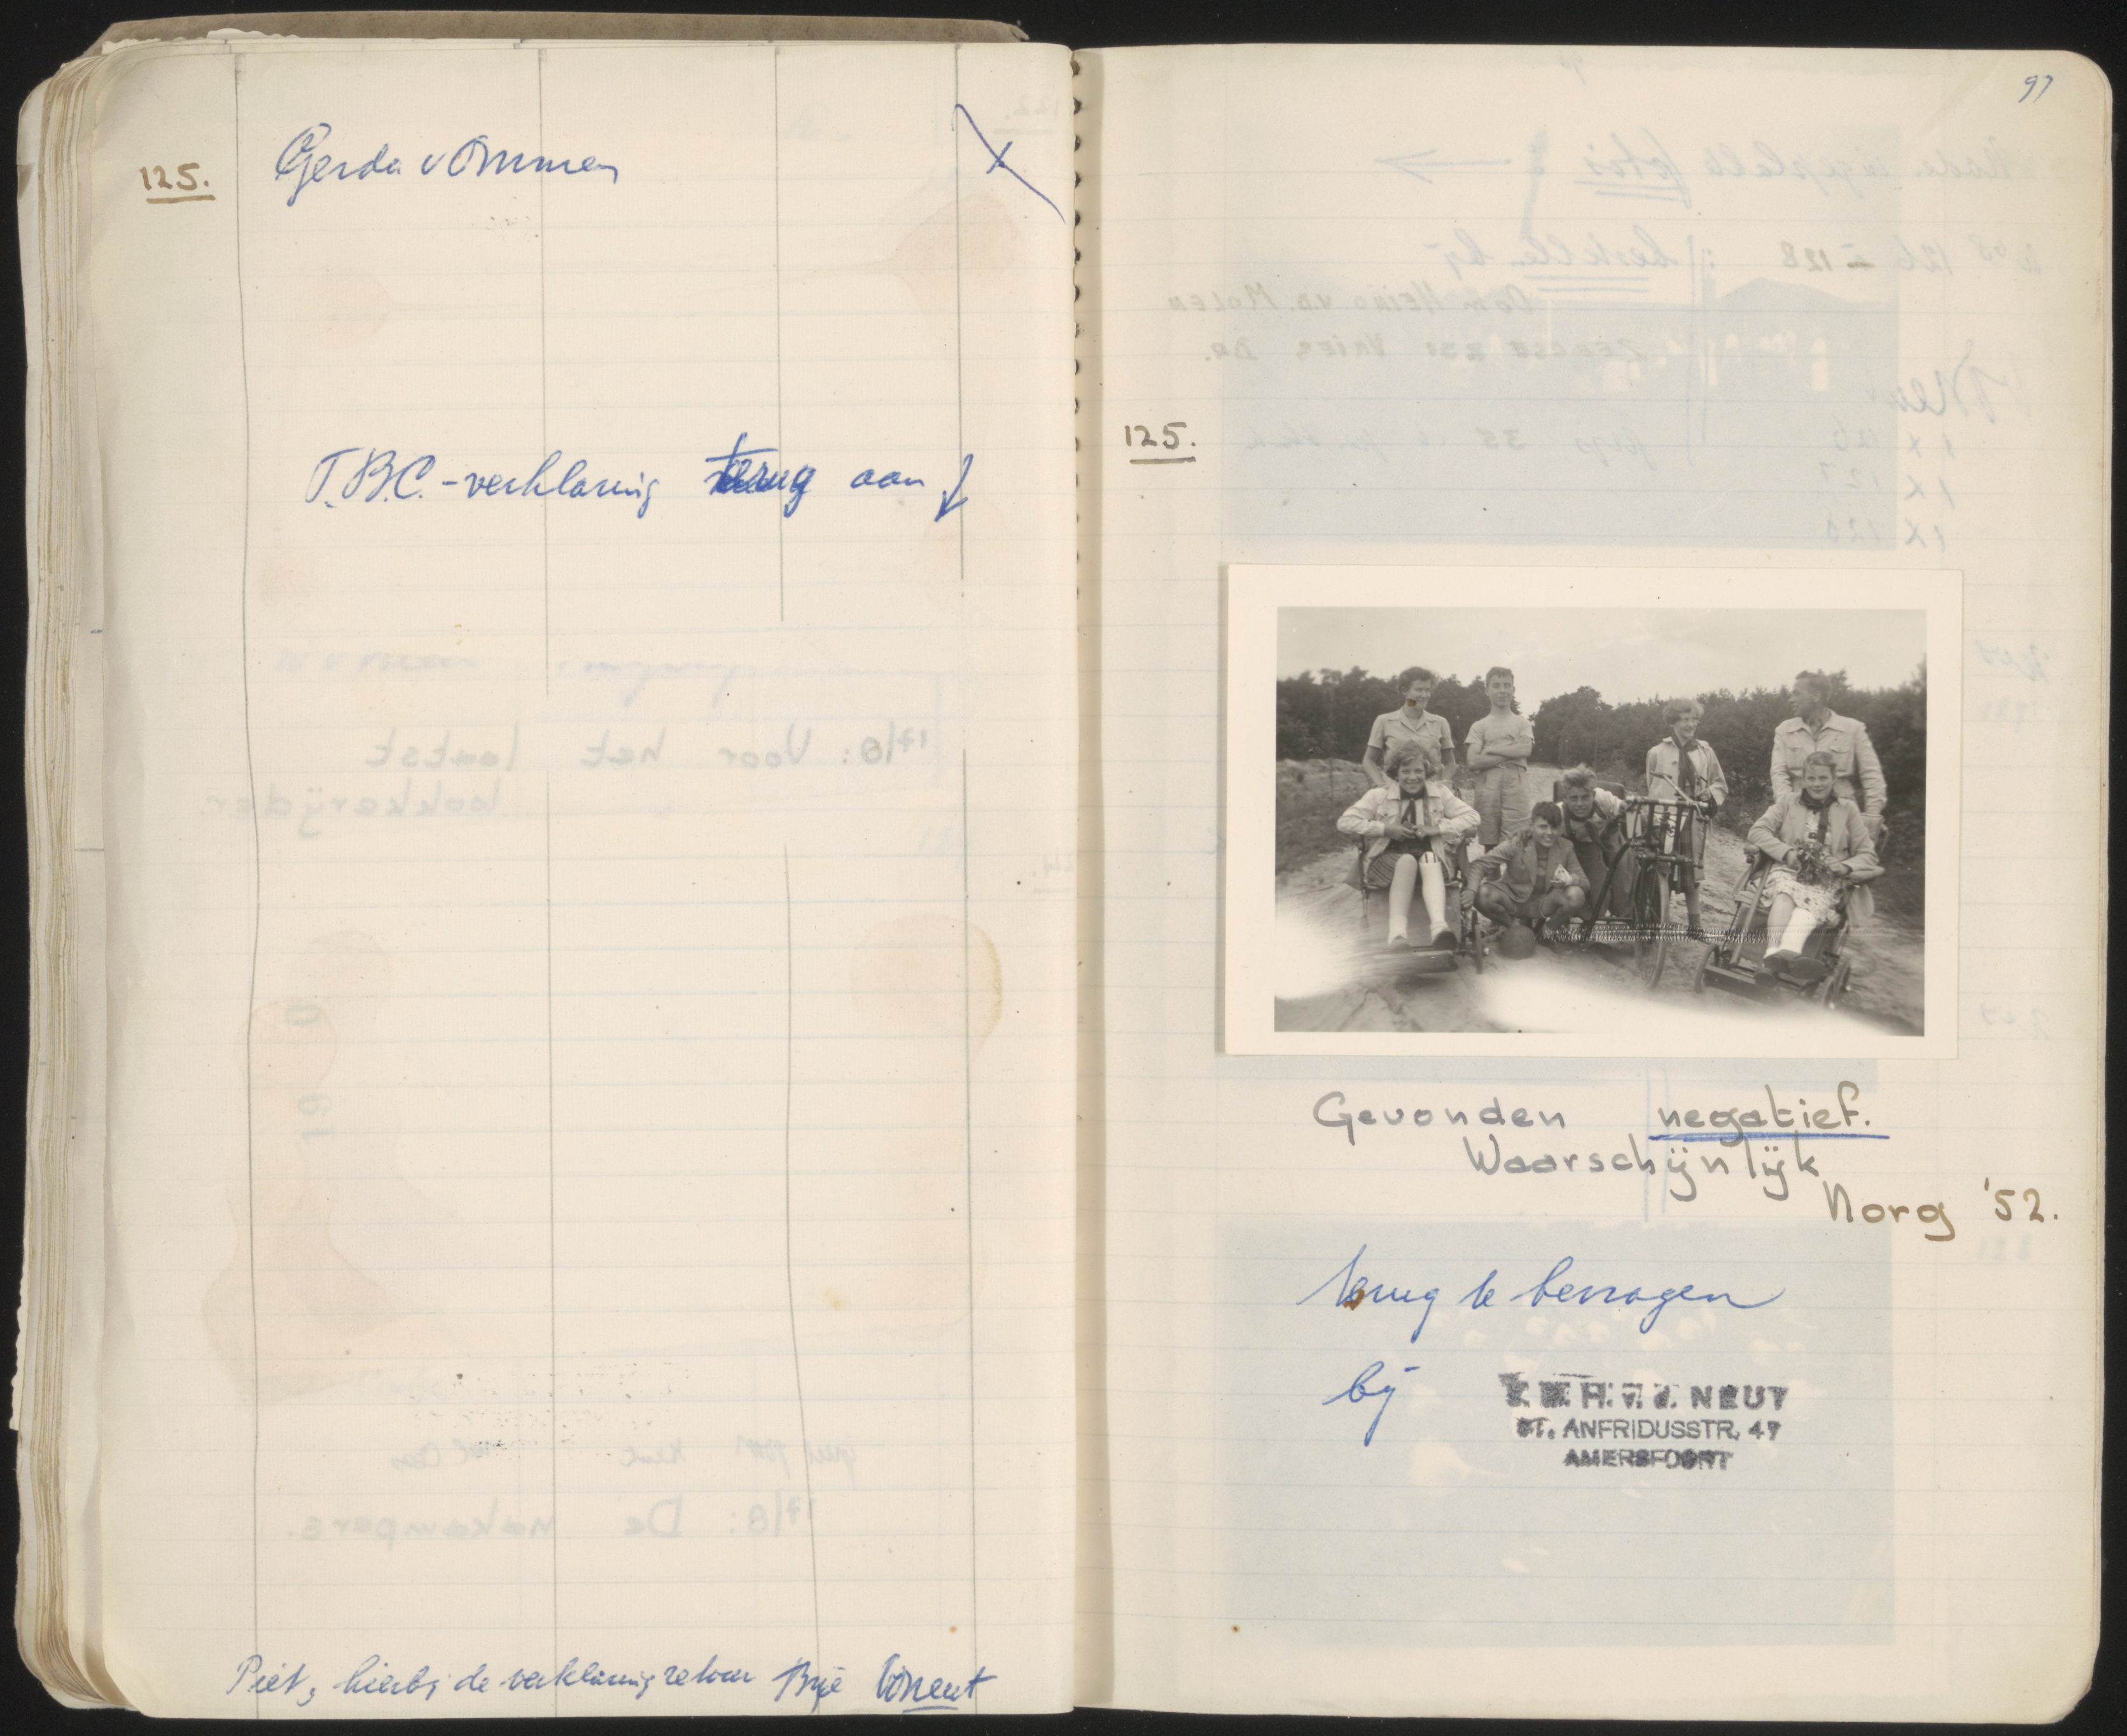 125.
Gerda v Ommen
X
T.B.C.-verklaring terug aan
Piet, hierbij de verklaring retour Bye Vincent
97
125.
Gevonden negatief.
Waarschijnlijk
Norg '52.
terug te bevragen
bij
NEUT
ST. ANFRIDUSSTR. 47
AMERSFOORT